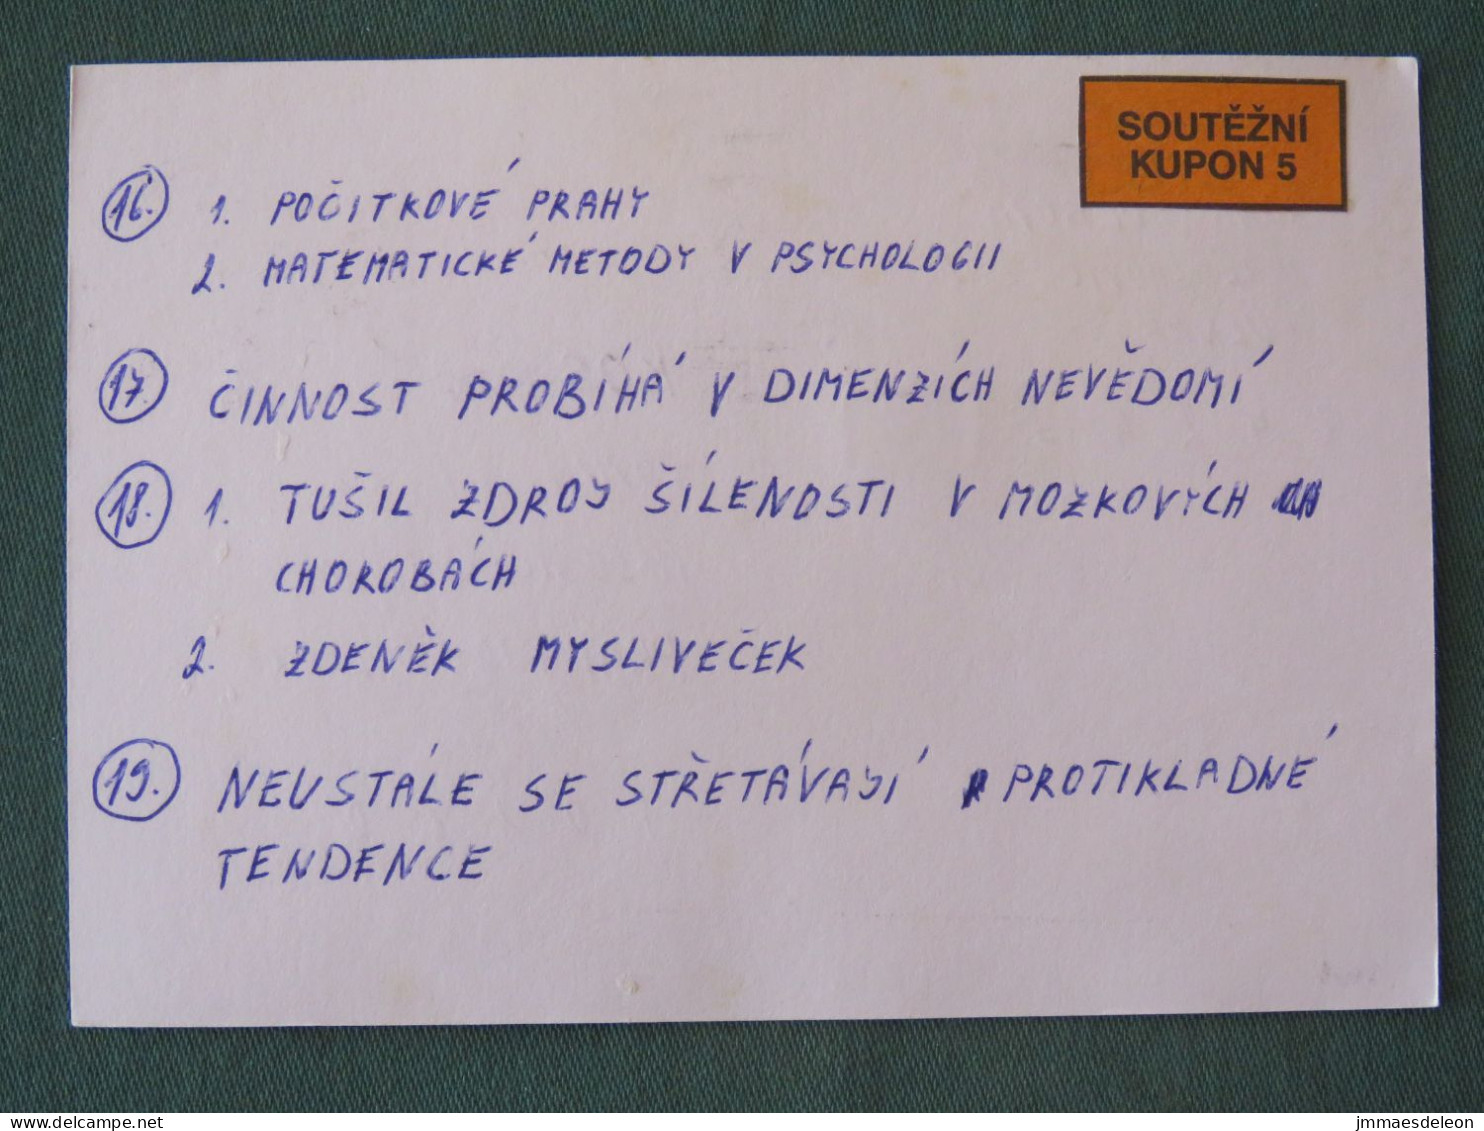 SOUTĚŽNÍ
KUPON 5
16. 1. POČITKOVÉ PRAHY
2. MATEMATICKÉ METODY V PSYCHOLOGII
17. ČINNOST PROBÍHÁ V DIMENZÍCH NEVĚDOMÍ
18. 1. TUŠIL ZDROJ ŠÍLENOSTI V MOZKOVÝCH
CHOROBÁCH
2. ZDENĚK MYSLIVEČEK
19. NEUSTÁLE SE STŘETÁVAJÍ PROTIKLADNÉ
TENDENCE
delcampe.net
jmmaesdeleon